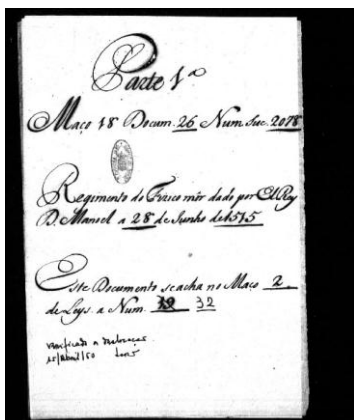 Parte 1ª
Maço 18 Docum. 26 Num. Suc. 2078
Regimento do Fizico mór dado por El Rey
D. Manoel a 28 de Junho de 1515
Este Documento se acha no Maço 2
de Leys. a Num. 32
Verificada a
15/Abril/50